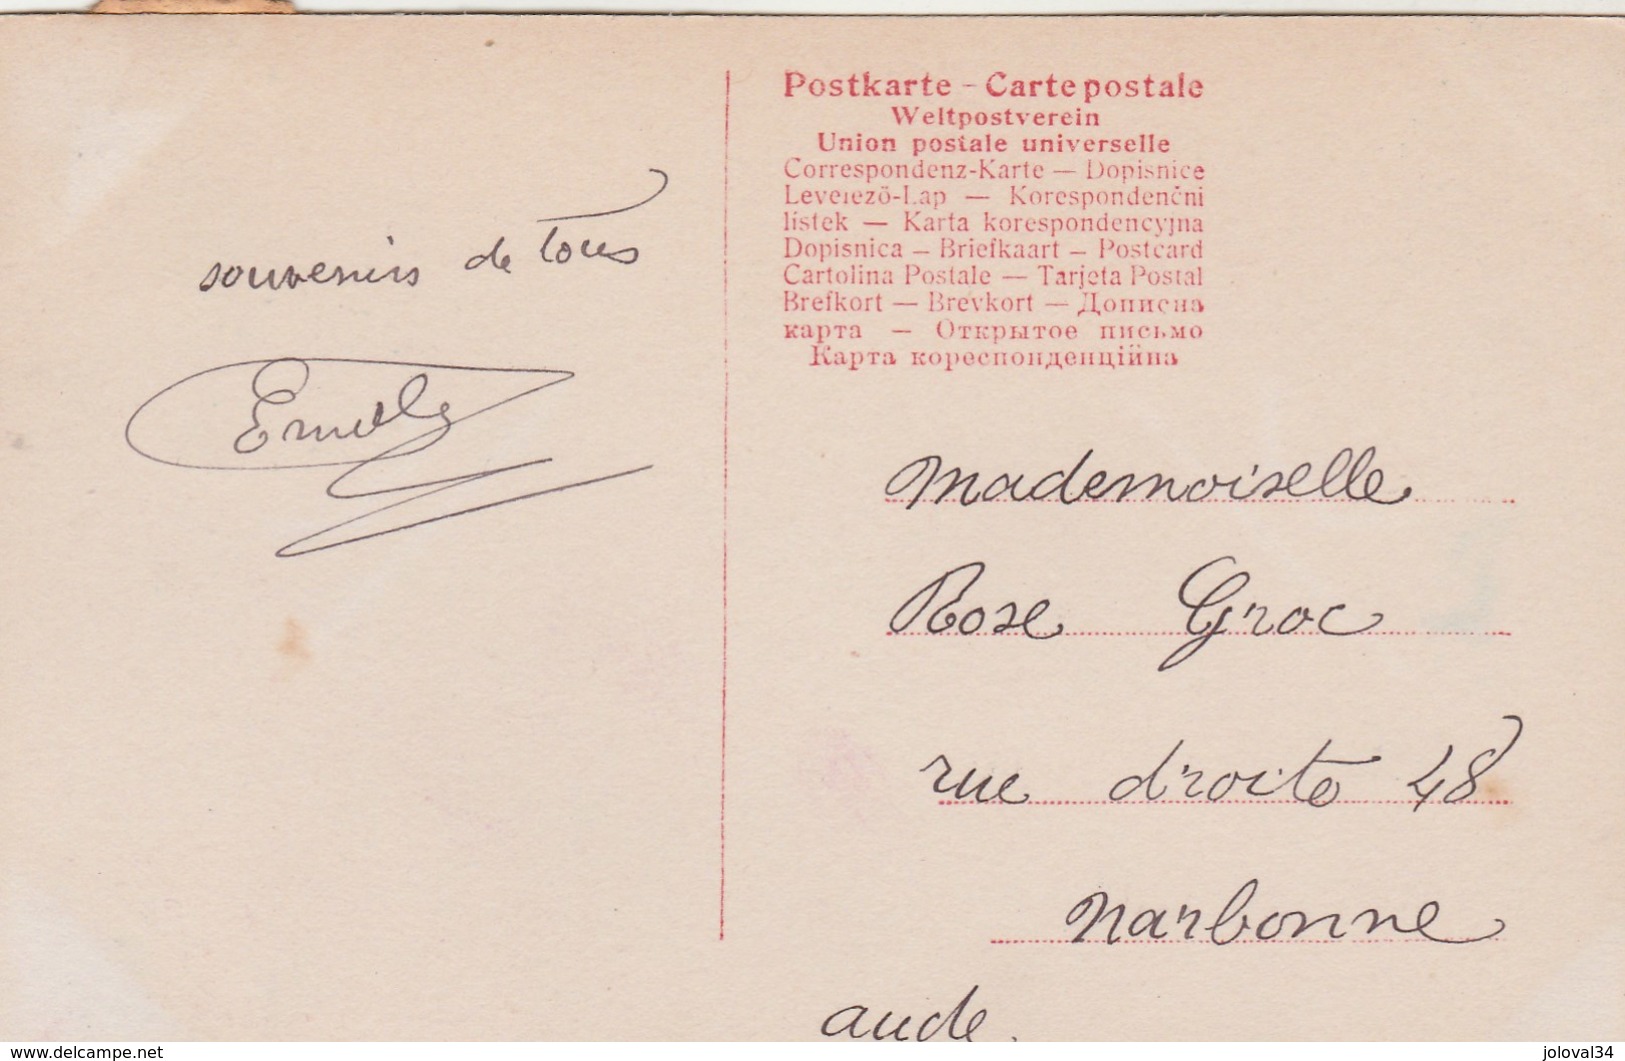 souvenirs de tous
Postkarte - Carte postale
Weltpostverein
Union postale universelle
Correspondenz-Karte — Dopisnice
Levelező-Lap — Korespondenční
lístek — Karta korespondencyjna
Dopisnica — Briefkaart — Postcard
Cartolina Postale — Tarjeta Postal
Brefkort — Brevkort — Дописна
карта — Открытое письмо
Карта кореспонденційна
Mademoiselle
Rose Groc
rue droite 48
Narbonne
aude.
www.delcampe.net
joloval34